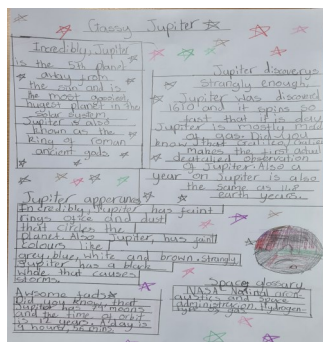 Gassy Jupiter
Incredibly, Jupiter
is the 5th planet
away from
the sun and is
the most
hugest planet in the
solar system
Jupiter is also
known as the
king of roman
ancient gods
Jupiter discoverys
Strangely enough,
Jupiter was discoverd
1610 and it spins so
fast that it is day
Jupiter is mostly made
of gas. Did you
know that Galileo
makes the first
deatailed observation
of Jupiter. Also a
year on Jupiter is also
the same as 11.8
earth years.
Jupiter apperance
Incredibly, Jupiter has faint
rings of ice and dust
that circles the
planet. Also Jupiter, has faint
colours like
grey, blue, white and brown. Strangly
Jupiter has a
whole that causes
storms.
Awsome facts
Did you know that
Jupiter has 79 moons
and the time of orbit
is 12 years. A day is
9 hours, 55 mins
Space glossary
NASA- National
and space
administration. Hydrogen-